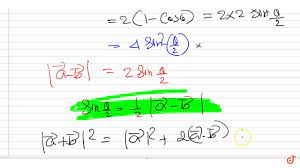 = 2 (1 - Cosθ) = 2×2 Sin²θ/2
= 4 Sin²(θ/2) ×
|a⃗-B⃗| = 2 Sin θ/2
Sin θ/2 = 1/2 |a⃗-B⃗|
|a⃗+B⃗|² = |a⃗|² + 2(a⃗.B⃗)